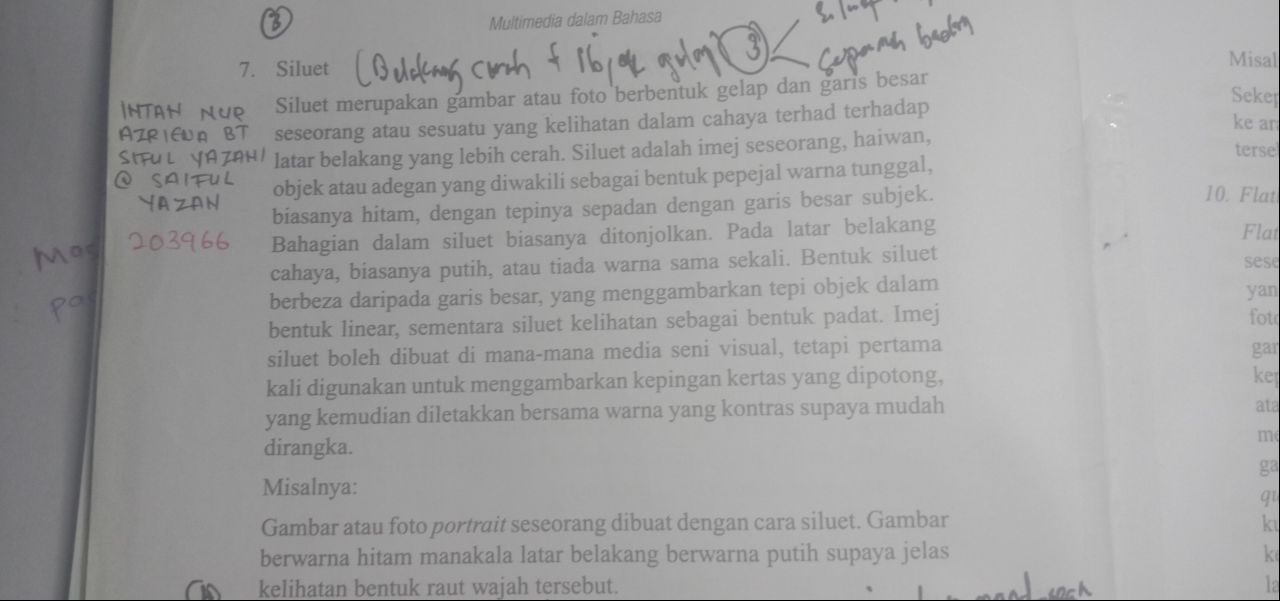 3
Multimedia dalam Bahasa
7. Siluet (Belakang cerah + objek gelap) 3
separuh badan
INTAN NUR
AZRIENA BT
SIFUL YAZAN/
@ SAIFUL
YAZAN
203966
Siluet merupakan gambar atau foto berbentuk gelap dan garis besar
seseorang atau sesuatu yang kelihatan dalam cahaya terhad terhadap
latar belakang yang lebih cerah. Siluet adalah imej seseorang, haiwan,
objek atau adegan yang diwakili sebagai bentuk pepejal warna tunggal,
biasanya hitam, dengan tepinya sepadan dengan garis besar subjek.
Bahagian dalam siluet biasanya ditonjolkan. Pada latar belakang
cahaya, biasanya putih, atau tiada warna sama sekali. Bentuk siluet
berbeza daripada garis besar, yang menggambarkan tepi objek dalam
bentuk linear, sementara siluet kelihatan sebagai bentuk padat. Imej
siluet boleh dibuat di mana-mana media seni visual, tetapi pertama
kali digunakan untuk menggambarkan kepingan kertas yang dipotong,
yang kemudian diletakkan bersama warna yang kontras supaya mudah
dirangka.
Misalnya:
Gambar atau foto portrait seseorang dibuat dengan cara siluet. Gambar
berwarna hitam manakala latar belakang berwarna putih supaya jelas
kelihatan bentuk raut wajah tersebut.
Misal
ke ar
10. Flat
Flat